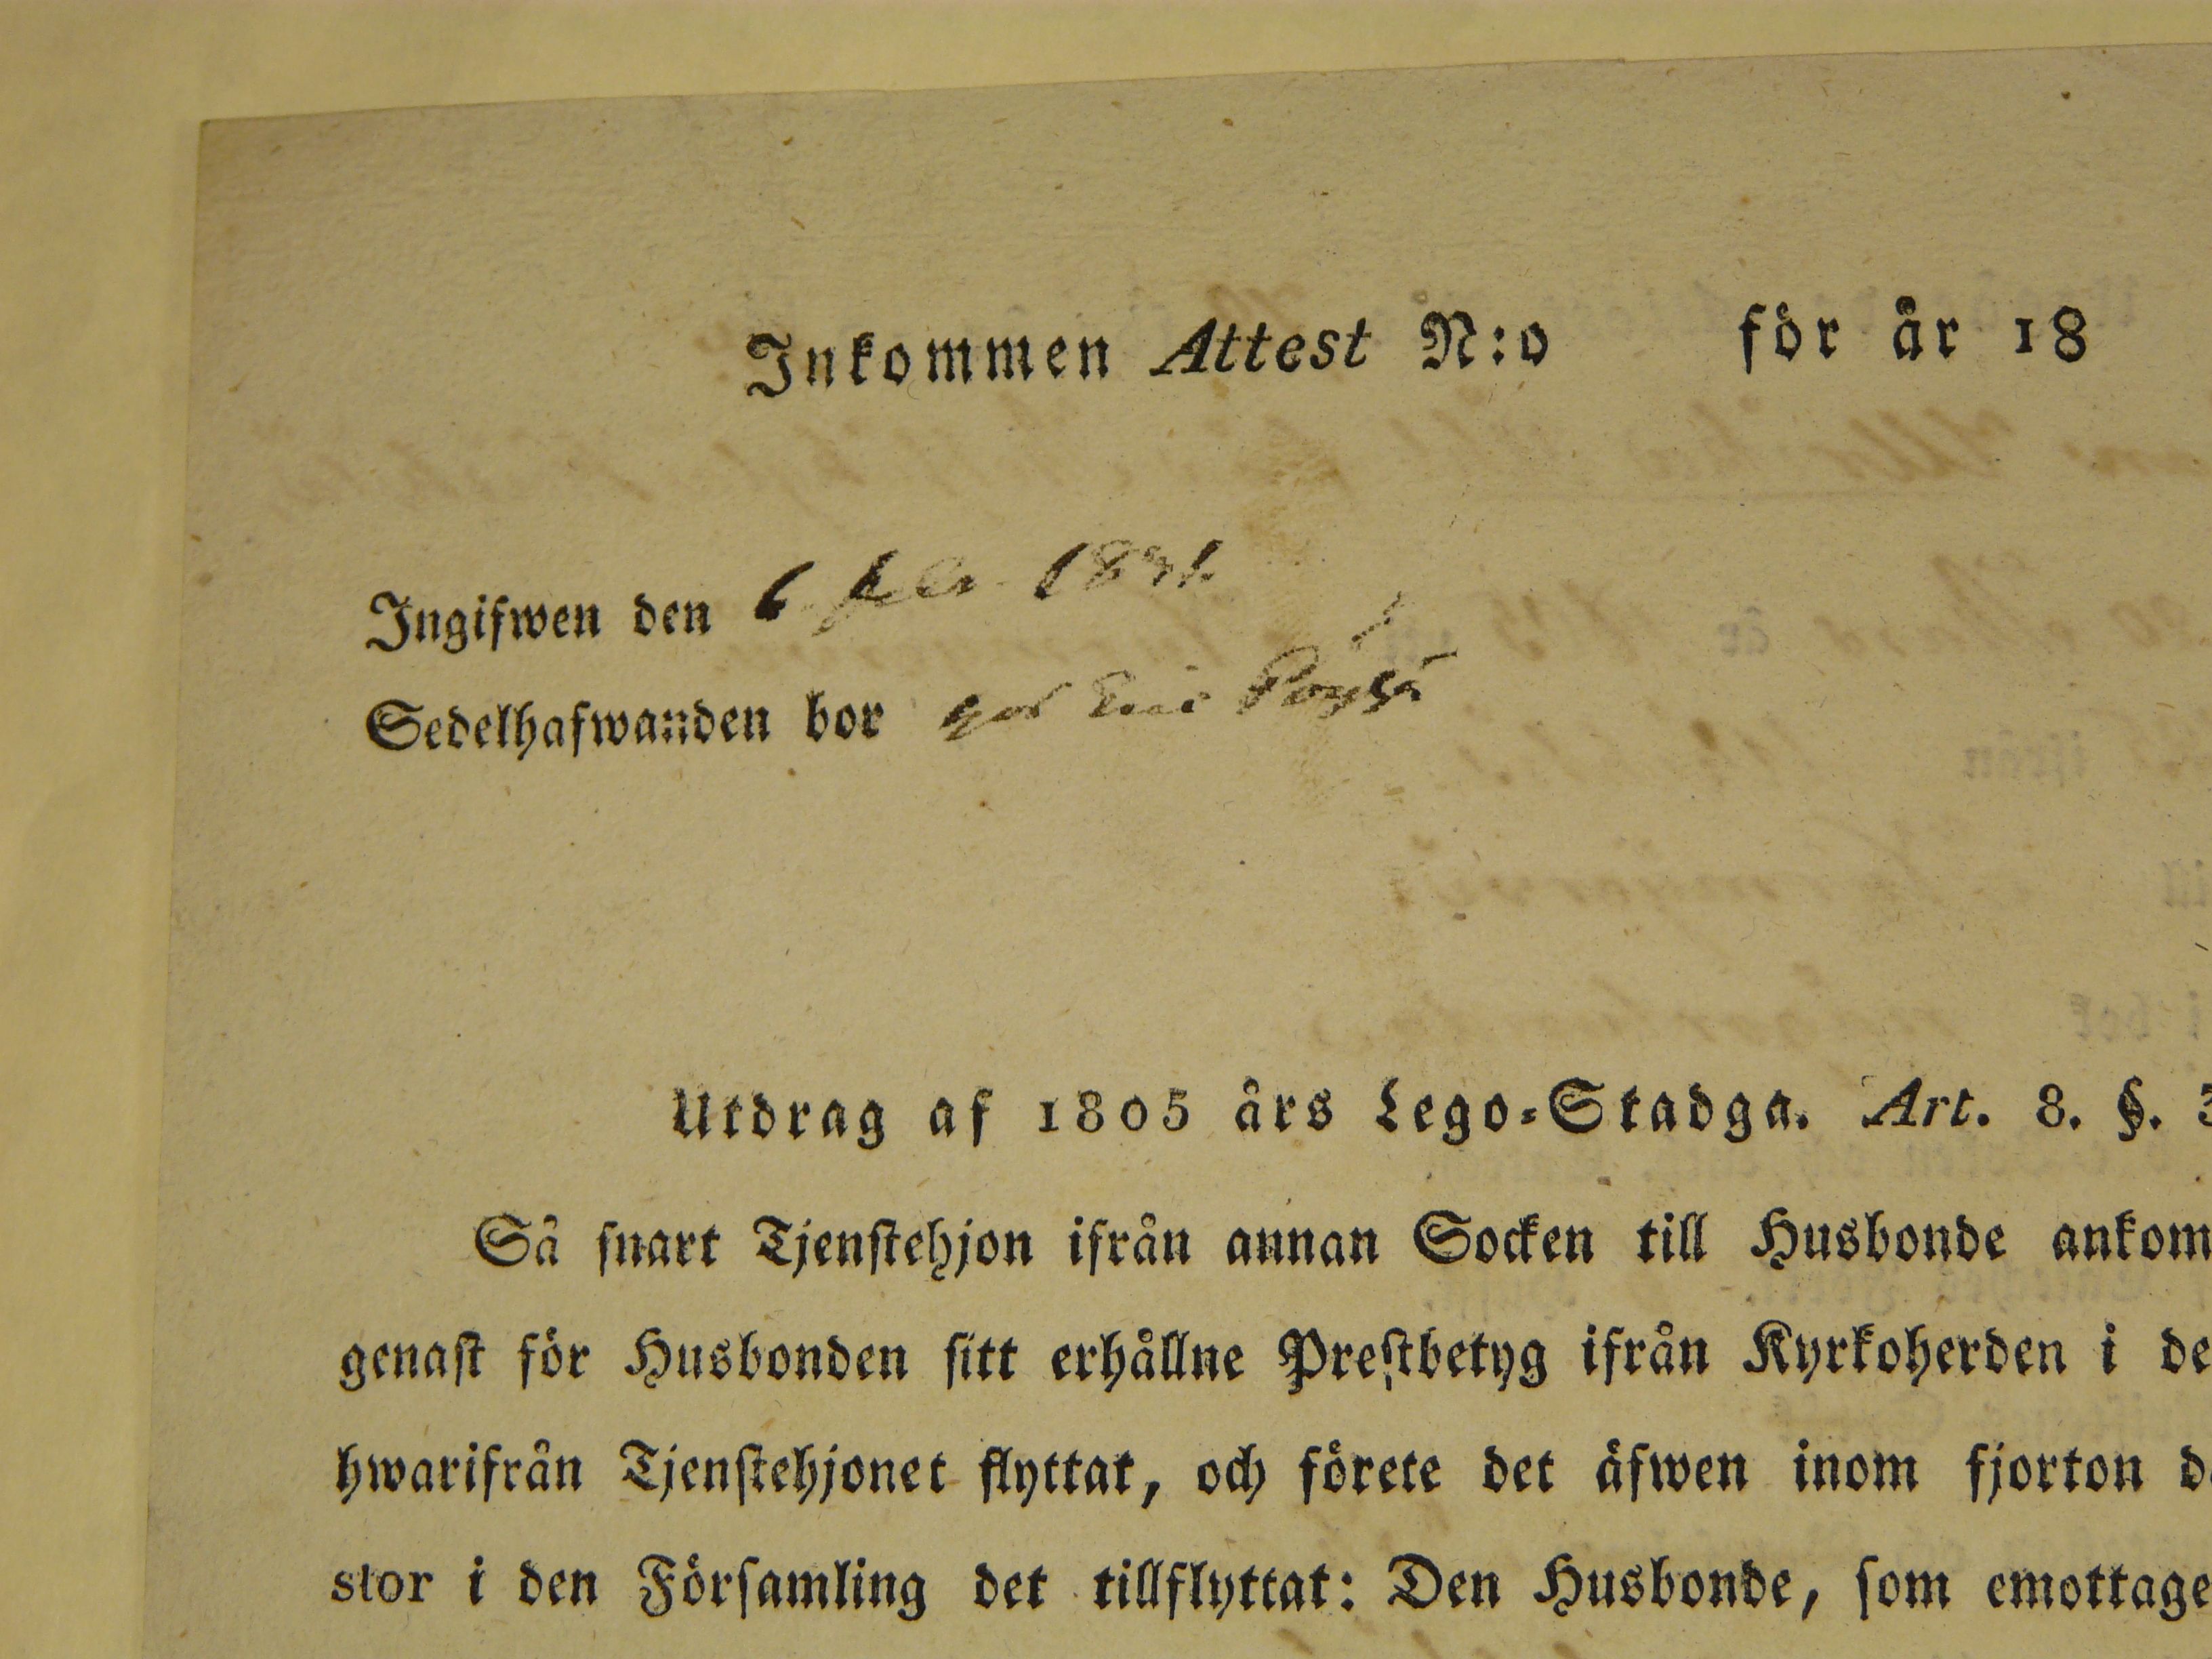 Inkommen Attest N:o för år 18
Ingifwen den 6 febr 1831.
Sedelhafwanden bor hos Eric
Utdrag af 1805 års Lego-Stadga. Art. 8. §. 3
Så snart Tjenstehjon ifrån annan Socken till Husbonde ankom
genast för Husbonden sitt erhållne Prestbetyg ifrån Kyrkoherden i de
hwarifrån Tjenstehjonet flyttat, och förete det äfwen inom fjorton d
stor i den Församling det tillflyttat: Den Husbonde, som emottage